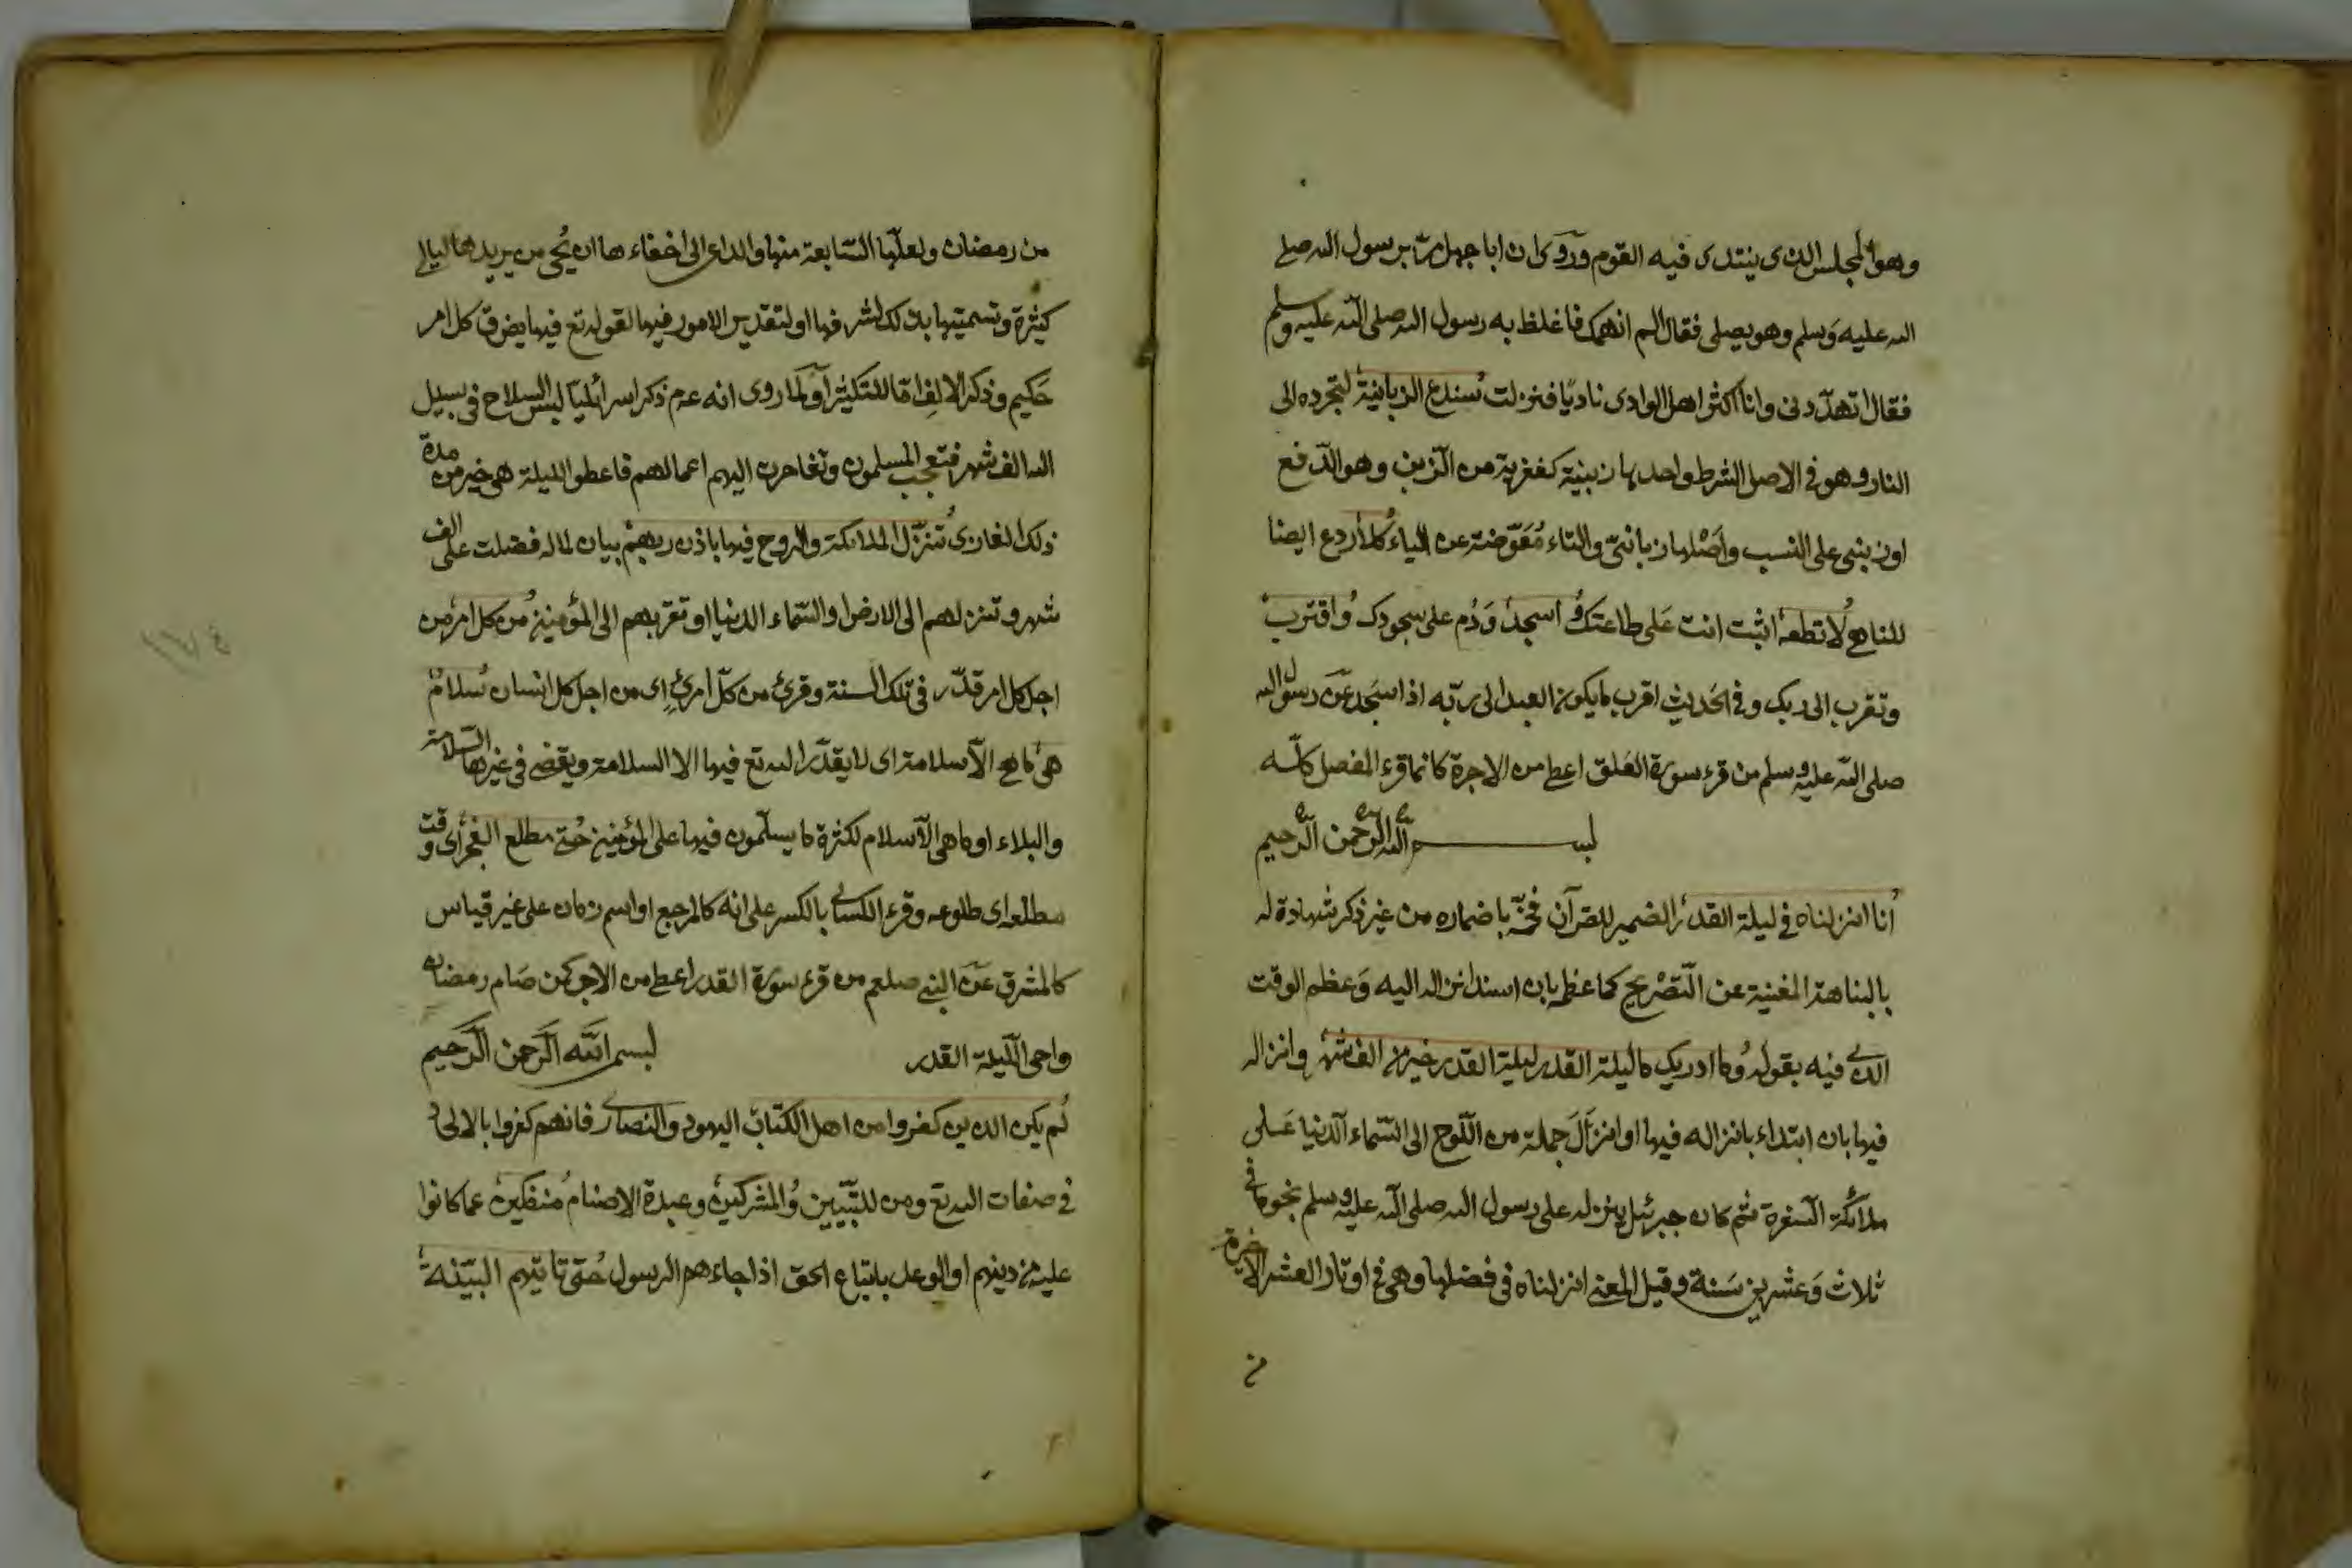 وهو المجلس الذى ينتدى فيه القوم وروى ان ابا جهل مر برسول الله صلى
الله عليه وسلم وهو يصلى فقال الم انهك فاغلظ به رسول الله صلى الله عليه وسلم
فقال اتهددنى وانا اكثر اهل الوادى ناديا فنزلت سندع الزبانية لتجره الى
النار وهو فى الاصل الشرط واحدها زبنية كعفرية من الزبن وهو الدفع
او زبنى على النسب واصلها زبانىّ والتاء معوّضة عن الياء كلا ردع ايضا
للناهى لا تطعه اثبت انت على طاعتك واسجد ودم على سجودك واقترب
وتقرب الى ربك وفى الحديث اقرب ما يكون العبد الى ربه اذا سجد عن رسول الله
صلى الله عليه وسلم من قرء سورة العلق اعطى من الاجرة كانما قرء المفصل كله
بسم الله الرحمن الرحيم
انا انزلناه فى ليلة القدر الضمير للقرآن فخمه باضماره من غير ذكر شهادة له
بالنباهة المغنية عن التصريح كما عظمه بان اسند انزاله اليه وعظم الوقت
الذى فيه بقوله وما ادريك ما ليلة القدر ليلة القدر خير من الف شهر وانزاله
فيها بان ابتداء بانزاله فيها او انزل جملة من اللوح الى السماء الدنيا على
ملائكة السفرة ثم كان جبرئيل ينزله على رسول الله صلى الله عليه وسلم نجوما فى
ثلاث وعشرين سنة وقيل المعنى انزلناه فى فضلها وهى فى اوتار العشر الاخيرة
من
من رمضان ولعلها السابعة منها والداعى الى اخفاءها ان يحى من يريدها ليالى
كثيرة وتسميتها بذلك لشرفها او لتقدير الامور فيها لقوله تع فيها يفرق كل امر
حكيم وذكر الالف اما للتكثير او لما روى انه عم ذكر اسرائليا لبس السلاح فى سبيل
الله الف شهر فتعجب المسلمون وتقاصرت اليهم اعمالهم فاعطوا ليلة هى خير من مدة
ذلك الغازى تنزل الملائكة والروح فيها باذن ربهم بيان لما له فضلت على الف
شهر وتنزلهم الى الارض او السماء الدنيا او تقربهم الى المؤمنين من كل امر من
اجل كل امر قدّر فى تلك السنة وقرئ من كلّ امرئ اى من اجل كل انسان سلام
هى ما هى الا سلامة اى لا يقدر الله تع فيها الا السلامة ويقضى فى غيرها السلامة
والبلاء او ما هى الا سلام لكثرة ما يسلمون فيها على المؤمنين حتى مطلع الفجر اى وقت
مطلعه اى طلوعه وقرء الكسائى بالكسر على انه كالمرجع او اسم زمان على غير قياس
كالمشرق عن النبى صلعم من قرء سورة القدر اعطى من الاجر كمن صام رمضان
واحى الليلة القدر بسم الله الرحمن الرحيم
لم يكن الذين كفروا من اهل الكتاب اليهود والنصارى فانهم كفروا بالالحاد
فى صفات الله تع ومن للتبيين والمشركين وعبدة الاصنام منفكين عما كانوا
عليه من دينهم او الوعد باتباع الحق اذا جاءهم الرسول حتى تاتيهم البينة